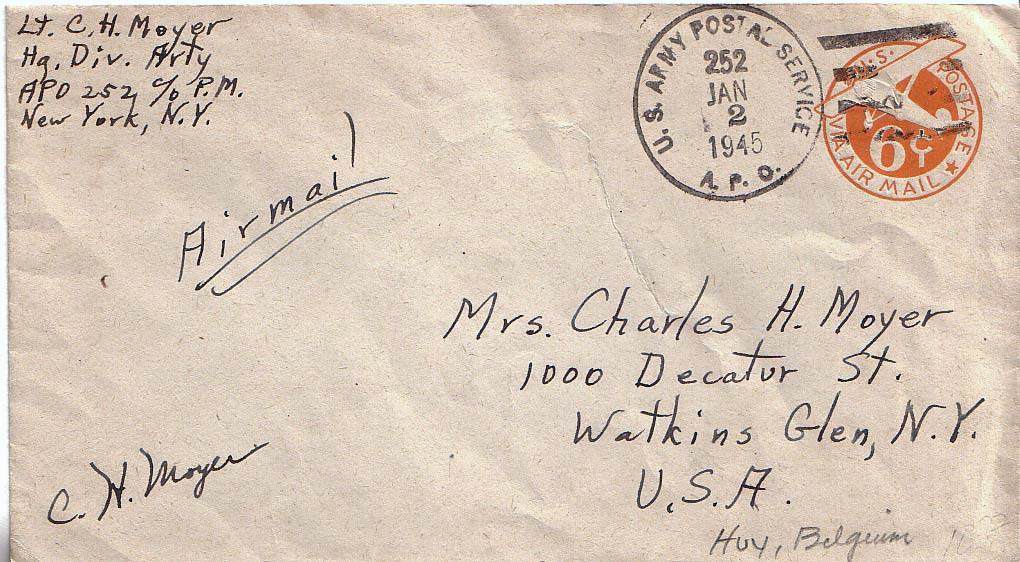 Lt. C. H. Moyer
Hq. Div. Arty
APO 252 c/o P.M.
New York, N.Y.
U.S. ARMY POSTAL SERVICE
252
JAN
2
1945
A. P. O.
U.S. POSTAGE
6¢
VIA AIR MAIL
Airmail
Mrs. Charles H. Moyer
1000 Decatur St.
Watkins Glen, N.Y.
U.S.A.
C. H. Moyer
Huy, Belgium